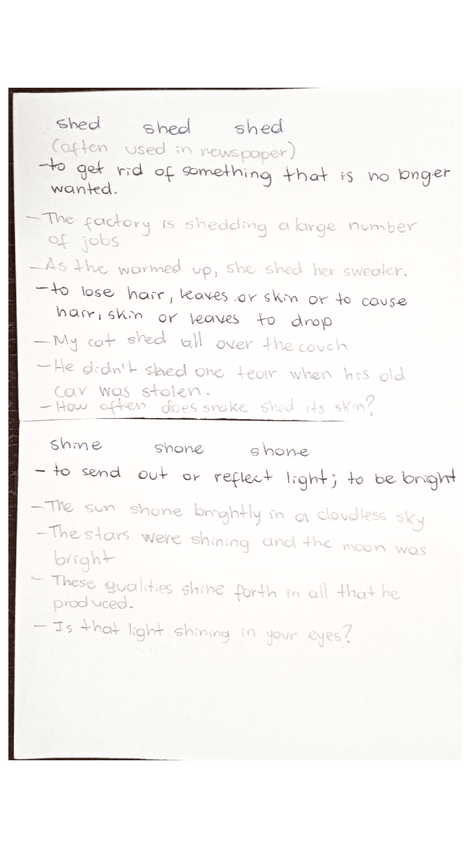 shed shed shed
(often used in newspaper)
-to get rid of something that is no longer
wanted.
-The factory is shedding a large number
of jobs
-As the warmed up, she shed her sweater.
-to lose hair, leaves or skin or to cause
hair, skin or leaves to drop
-My cat shed all over the couch
-He didn't shed one tear when his old
car was stolen.
-How often does snake shed its skin?
shine shone shone
- to send out or reflect light; to be bright
-The sun shone brightly in a cloudless sky
-The stars were shining and the moon was
bright
- These qualities shine forth in all that he
produced.
- Is that light shining in your eyes?